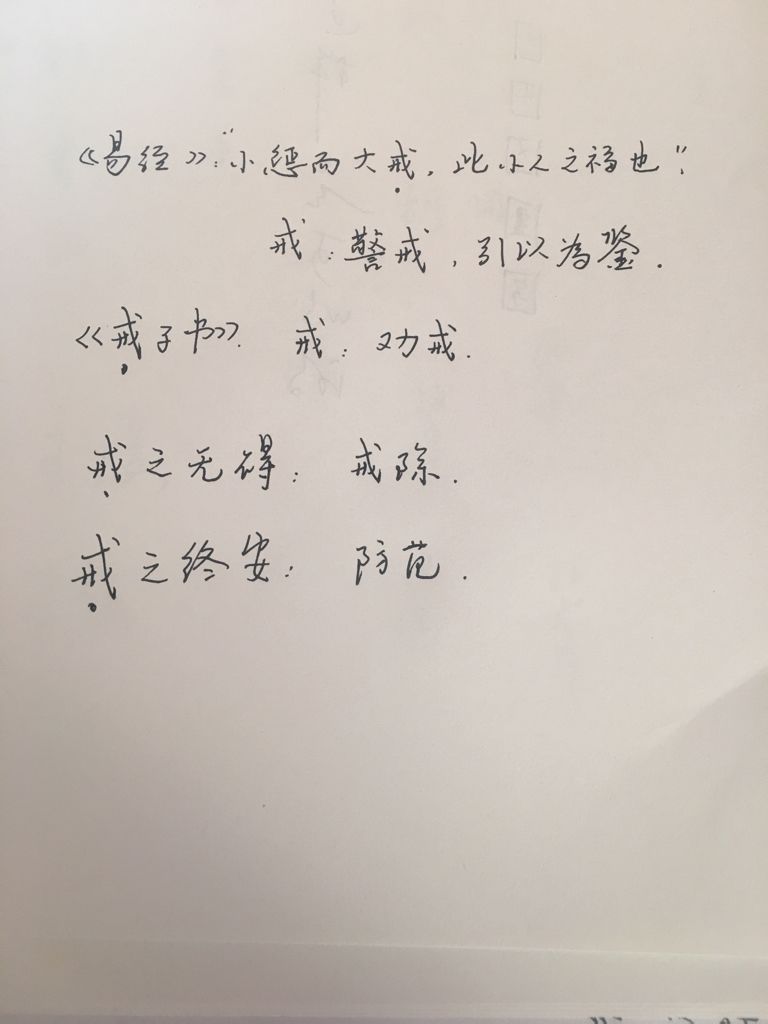 《易经》:“小惩而大戒,此小人之福也”.
戒:警戒,引以為鉴.
《戒子书》. 戒:劝戒.
戒之无碍: 戒除.
戒之终安: 防范.